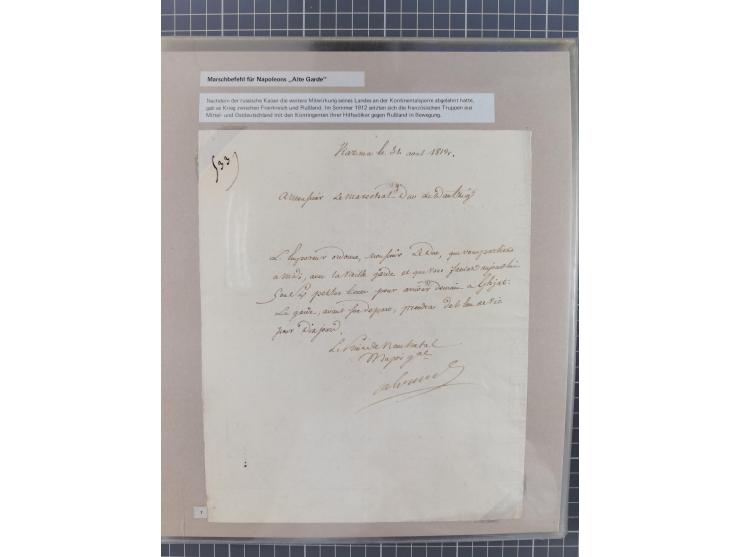 Marschbefehl für Napoleons „Alte Garde"
Nachdem der russische Kaiser die weitere Mitwirkung seines Landes an der Kontinentalsperre abgelehnt hatte,
gab es Krieg zwischen Frankreich und Rußland. Im Sommer 1812 setzten sich die französischen Truppen aus
Mittel- und Ostdeutschland mit den Kontingenten ihrer Hilfsvölker gegen Rußland in Bewegung.
533
le 31 aout 1812.
A monsieur Le marechal Duc de Dantzig
L'Empereur ordonne, monsieur Le Duc, que vous partiez
a midi, avec la vieille garde et que vous fassiez aujourdhui
petites lieues pour arriver demain a Ghjat.
La garde, avant son depart, prendra de l'eau de vie
pour Dix jours.
Le Prince de Neuchatel
Major gal
1